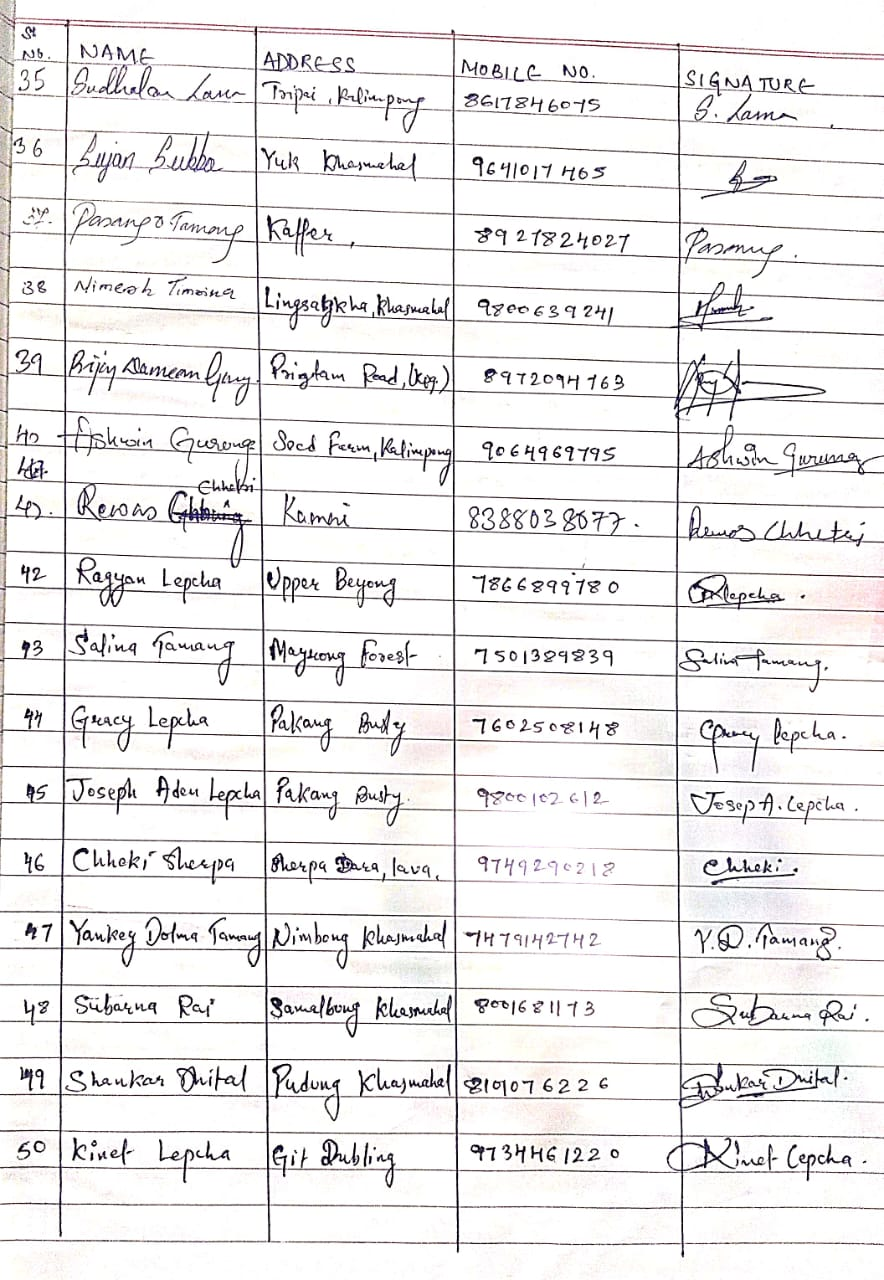 Sl No. NAME ADDRESS MOBILE NO. SIGNATURE
35 Sudhalan Lama Tripai, Kalimpong 8617846075 S. Lama
36 Sujan Subba Yuk Khasmahal 9641017465
37. Pasang Tamang Kaffer, 8927824027 Pasang.
38 Nimesh Timsina Lingsaykha, Khasmahal 9800639241
39 Bijay Road, (Kpg) 8972094763
40 Ashwin Gurung Seed Farm, Kalimpong 9064969795 Ashwin Gurung
Chhetri
Rewas 8388038677. Rewas Chhetri
42 Ragyan Lepcha Upper Beyong 7866899780 Rlepcha.
43 Salina Tamang Forest 7501389839 Salina Tamang.
44 Gracy Lepcha Pakang Busty 7602508148 Gracy Lepcha.
45 Joseph Aden Lepcha Pakang Busty. 9800102612 Josep A. Lepcha.
46 Chheki Sherpa Sherpa Dara, lava, 9749290218 Chheki.
47 Yankey Dolma Tamang Nimbong Khasmahal 7479142742 Y.D. Tamang.
48 Subarna Rai Samalbong Khasmahal 8001681173 Subarna Rai.
49 Shankar Dhital Pudung Khasmahal 8101076226 Shankar Dhital.
50 Kinet Lepcha Git Dubling 9734461220 Kinet Lepcha.